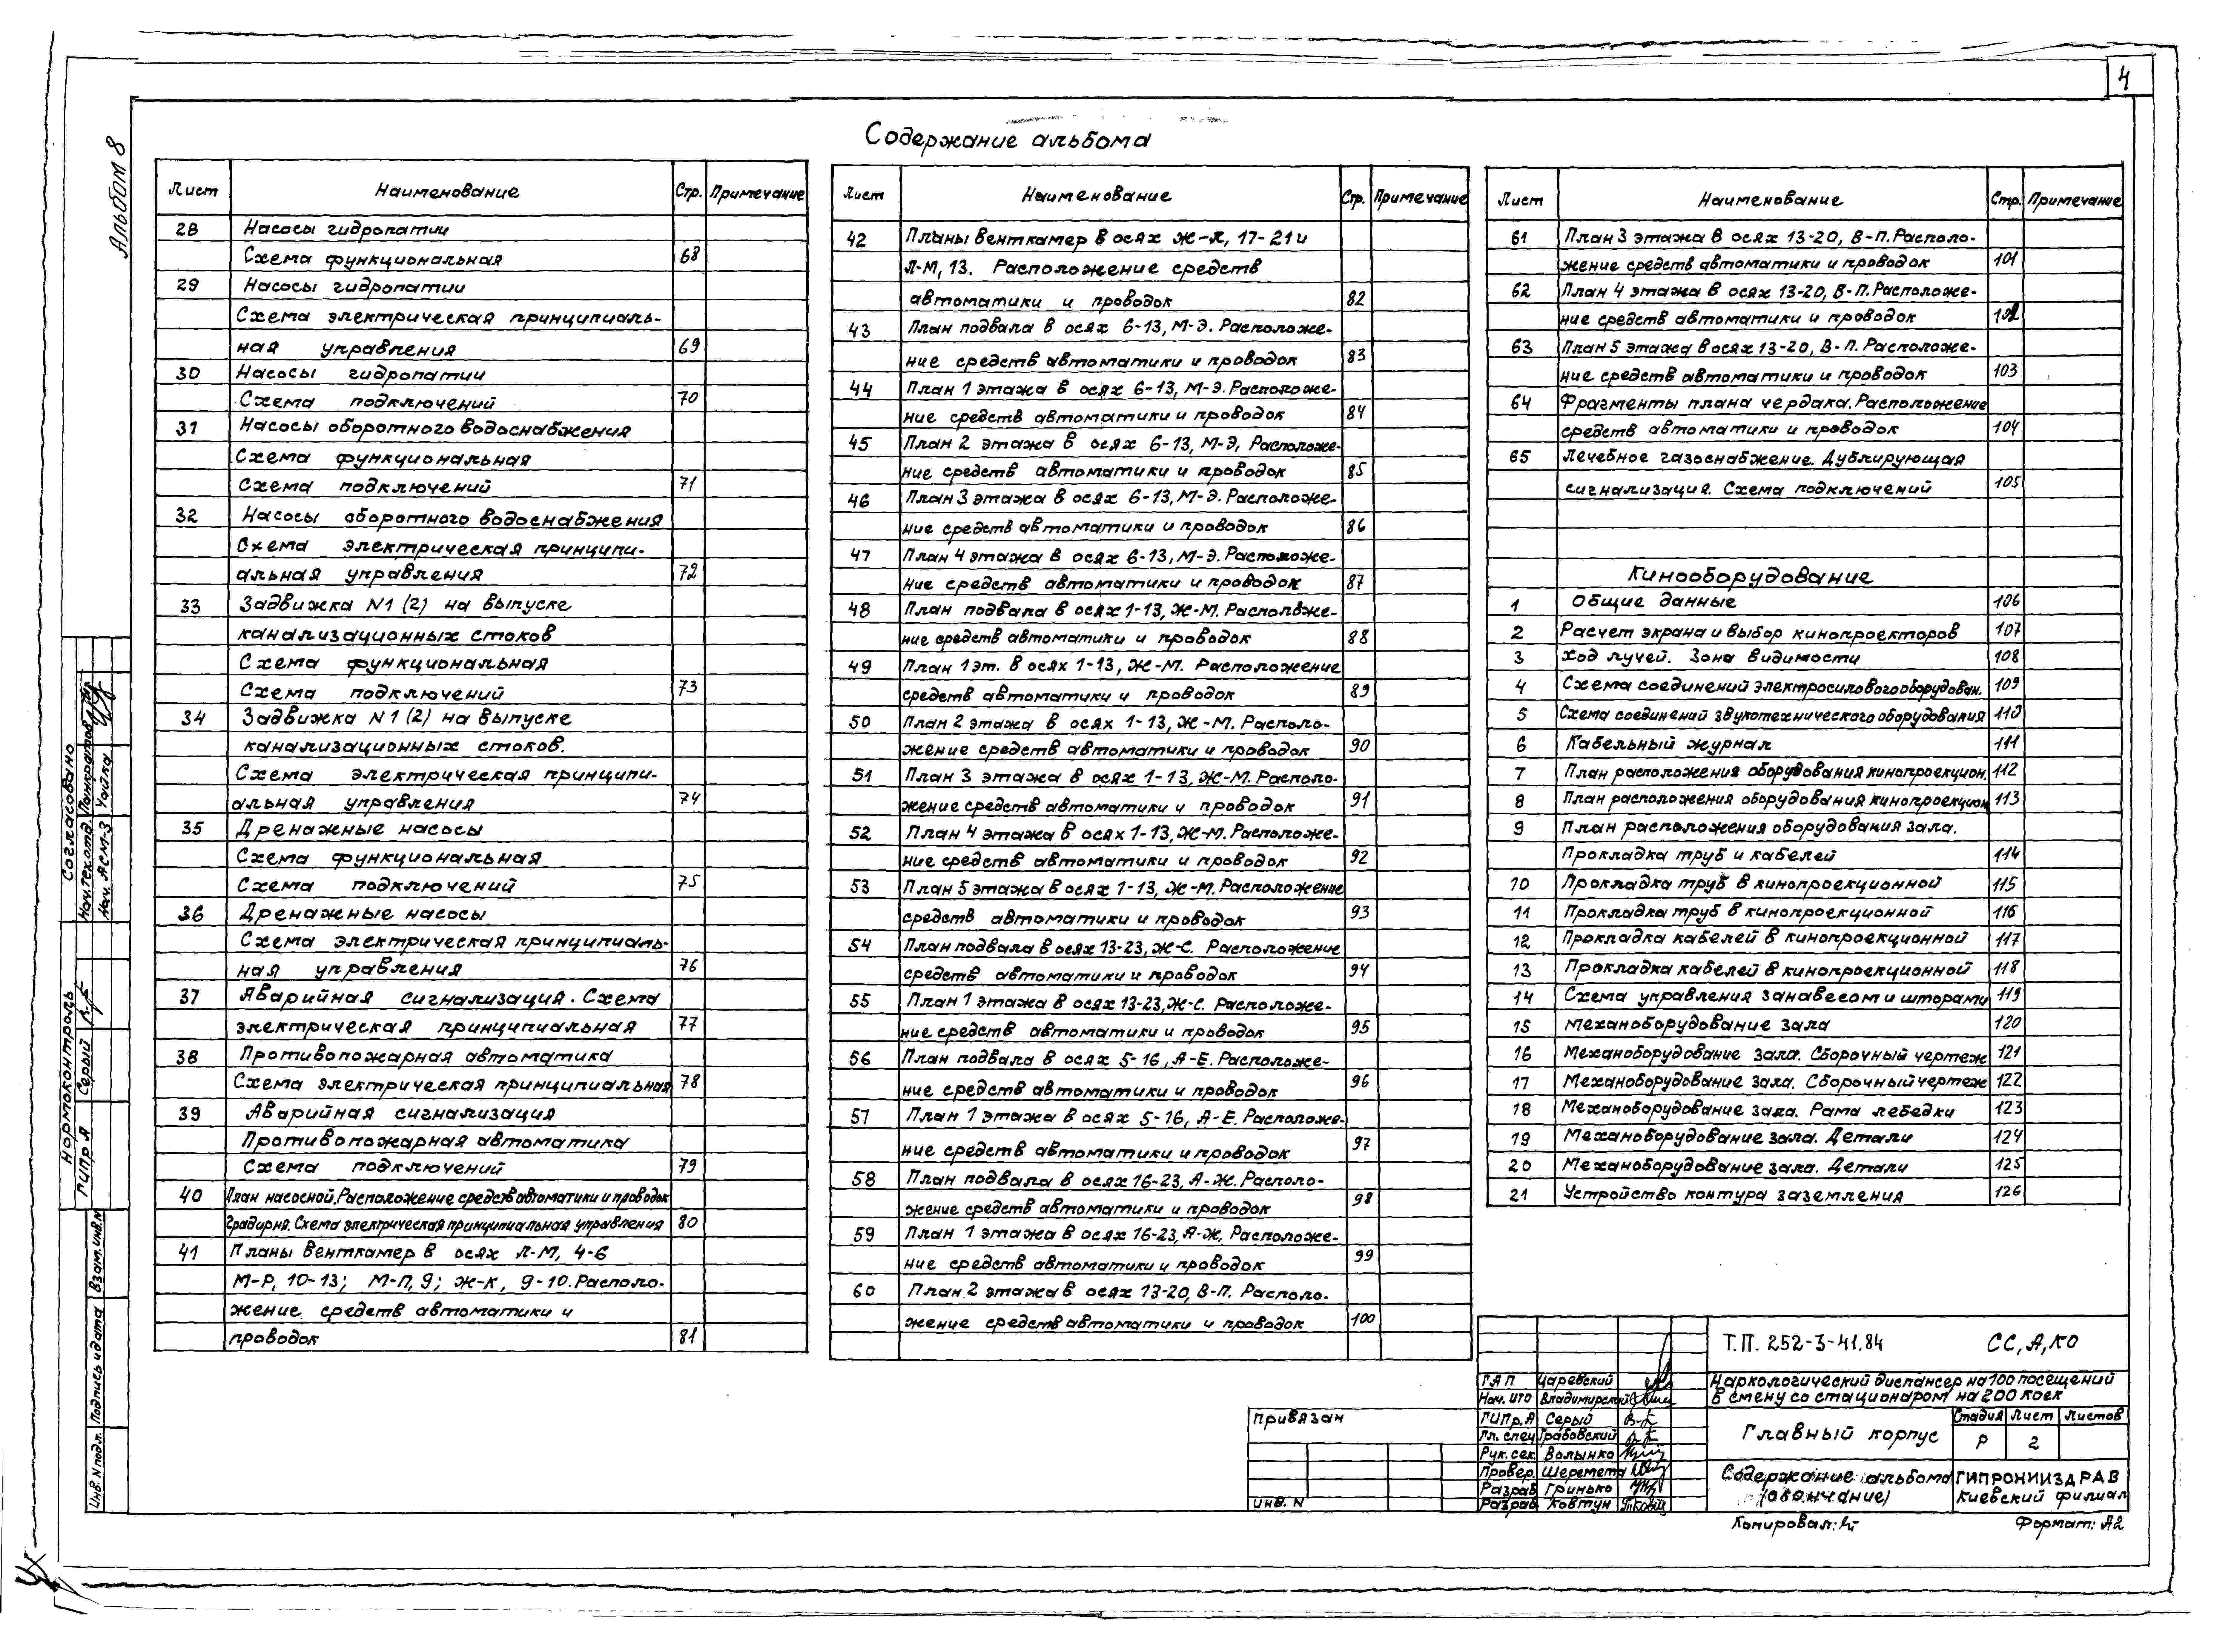 4
Альбом 8
Содержание альбома
Лист Наименование Стр. Примечание
28 Насосы гидропатии
Схема функциональная 68
29 Насосы гидропатии
Схема электрическая принципиаль-
ная управления 69
30 Насосы гидропатии
Схема подключений 70
31 Насосы оборотного водоснабжения
Схема функциональная
Схема подключений 71
32 Насосы оборотного водоснабжения
Схема электрическая принципи-
альная управления 72
33 Задвижка N1 (2) на выпуске
канализационных стоков
Схема функциональная
Схема подключений 73
34 Задвижка N1 (2) на выпуске
канализационных стоков.
Схема электрическая принципи-
альная управления 74
35 Дренажные насосы
Схема функциональная
Схема подключений 75
36 Дренажные насосы
Схема электрическая принципиаль-
ная управления 76
37 Аварийная сигнализация. Схема
электрическая принципиальная 77
38 Противопожарная автоматика
Схема электрическая принципиальная 78
39 Аварийная сигнализация
Противопожарная автоматика
Схема подключений 79
40 План насосной. Расположение средств автоматики и проводок
Градирня. Схема электрическая принципиальная управления 80
41 Планы венткамер в осях Л-М, 4-6
М-Р, 10-13; М-П, 9; Ж-К, 9-10. Располо-
жение средств автоматики и
проводок 81
Лист Наименование Стр. Примечание
42 Планы венткамер в осях Ж-Л, 17-21 и
Л-М, 13. Расположение средств
автоматики и проводок 82
43 План подвала в осях 6-13, М-Э. Расположе-
ние средств автоматики и проводок 83
44 План 1 этажа в осях 6-13, М-Э. Расположе-
ние средств автоматики и проводок 84
45 План 2 этажа в осях 6-13, М-Э, Расположе-
ние средств автоматики и проводок 85
46 План 3 этажа в осях 6-13, М-Э. Расположе-
ние средств автоматики и проводок 86
47 План 4 этажа в осях 6-13, М-Э. Расположе-
ние средств автоматики и проводок 87
48 План подвала в осях 1-13, Ж-М. Расположе-
ние средств автоматики и проводок 88
49 План 1 эт. в осях 1-13, Ж-М. Расположение
средств автоматики и проводок 89
50 План 2 этажа в осях 1-13, Ж-М. Располо-
жение средств автоматики и проводок 90
51 План 3 этажа в осях 1-13, Ж-М. Располо-
жение средств автоматики и проводок 91
52 План 4 этажа в осях 1-13, Ж-М. Расположе-
ние средств автоматики и проводок 92
53 План 5 этажа в осях 1-13, Ж-М. Расположение
средств автоматики и проводок 93
54 План подвала в осях 13-23, Ж-С. Расположение
средств автоматики и проводок 94
55 План 1 этажа в осях 13-23, Ж-С. Расположе-
ние средств автоматики и проводок 95
56 План подвала в осях 5-16, А-Е. Расположе-
ние средств автоматики и проводок 96
57 План 1 этажа в осях 5-16, А-Е. Расположе-
ние средств автоматики и проводок 97
58 План подвала в осях 16-23, А-Ж. Располо-
жение средств автоматики и проводок 98
59 План 1 этажа в осях 16-23, А-Ж, Расположе-
ние средств автоматики и проводок 99
60 План 2 этажа в осях 13-20, В-П. Располо-
жение средств автоматики и проводок 100
Лист Наименование Стр. Примечание
61 План 3 этажа в осях 13-20, В-П. Располо-
жение средств автоматики и проводок 101
62 План 4 этажа в осях 13-20, В-П. Расположе-
ние средств автоматики и проводок 102
63 План 5 этажа в осях 13-20, В-П. Расположе-
ние средств автоматики и проводок 103
64 Фрагменты плана чердака. Расположение
средств автоматики и проводок 104
65 Лечебное газоснабжение. Дублирующая
сигнализация. Схема подключений 105
Кинооборудование
1 Общие данные 106
2 Расчет экрана и выбор кинопроекторов 107
3 Ход лучей. Зона видимости 108
4 Схема соединений электросилового оборудован. 109
5 Схема соединений звукотехнического оборудования 110
6 Кабельный журнал 111
7 План расположения оборудования кинопроекцион. 112
8 План расположения оборудования кинопроекцион 113
9 План расположения оборудования зала.
Прокладка труб и кабелей 114
10 Прокладка труб в кинопроекционной 115
11 Прокладка труб в кинопроекционной 116
12 Прокладка кабелей в кинопроекционной 117
13 Прокладка кабелей в кинопроекционной 118
14 Схема управления занавесом и шторами 119
15 Механоборудование зала 120
16 Механоборудование зала. Сборочный чертеж 121
17 Механоборудование зала. Сборочный чертеж 122
18 Механоборудование зала. Рама лебедки 123
19 Механоборудование зала. Детали 124
20 Механоборудование зала. Детали 125
21 Устройство контура заземления 126
Согласовано
Нач. тех. отд. Панкратов
Нач. АСМ-3 Чайка
Нормоконтроль
ГИПр А Серый
Инв. N подл. Подпись и дата Взам. инв. N
Привязан
Инв. N
ГАП Царевский
Нач. ИТО Владимирский
ГИПр. А Серый
Гл. спец. Грабовский
Рук. сек. Волынко
Провер. Шеремета
Разраб Гринько
Разраб Ковтун
Т.П. 252-3-41.84 СС, А, КО
Наркологический диспансер на 100 посещений
в смену со стационаром на 200 коек
Главный корпус
Стадия Лист Листов
Р 2
Содержание альбома
(окончание)
ГИПРОНИИЗДРАВ
Киевский филиал
Копировал:
Формат: А2